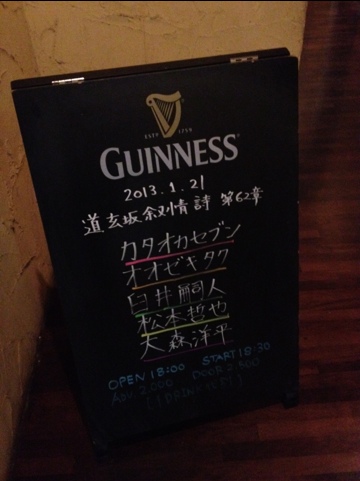 ESTD 1759
GUINNESS
2013.1.21
道玄坂余刈情詩 第62章
カタオカセブン
オオゼキタク
臼井嗣人
松本哲也
大森洋平
OPEN 18:00 START 18:30
ADV. 2,000 DOOR 2,500
(1DRINK